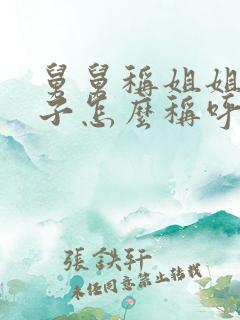 舅舅稱姐姐
子怎麼稱呼
張鉄軒
未经同意禁止转载